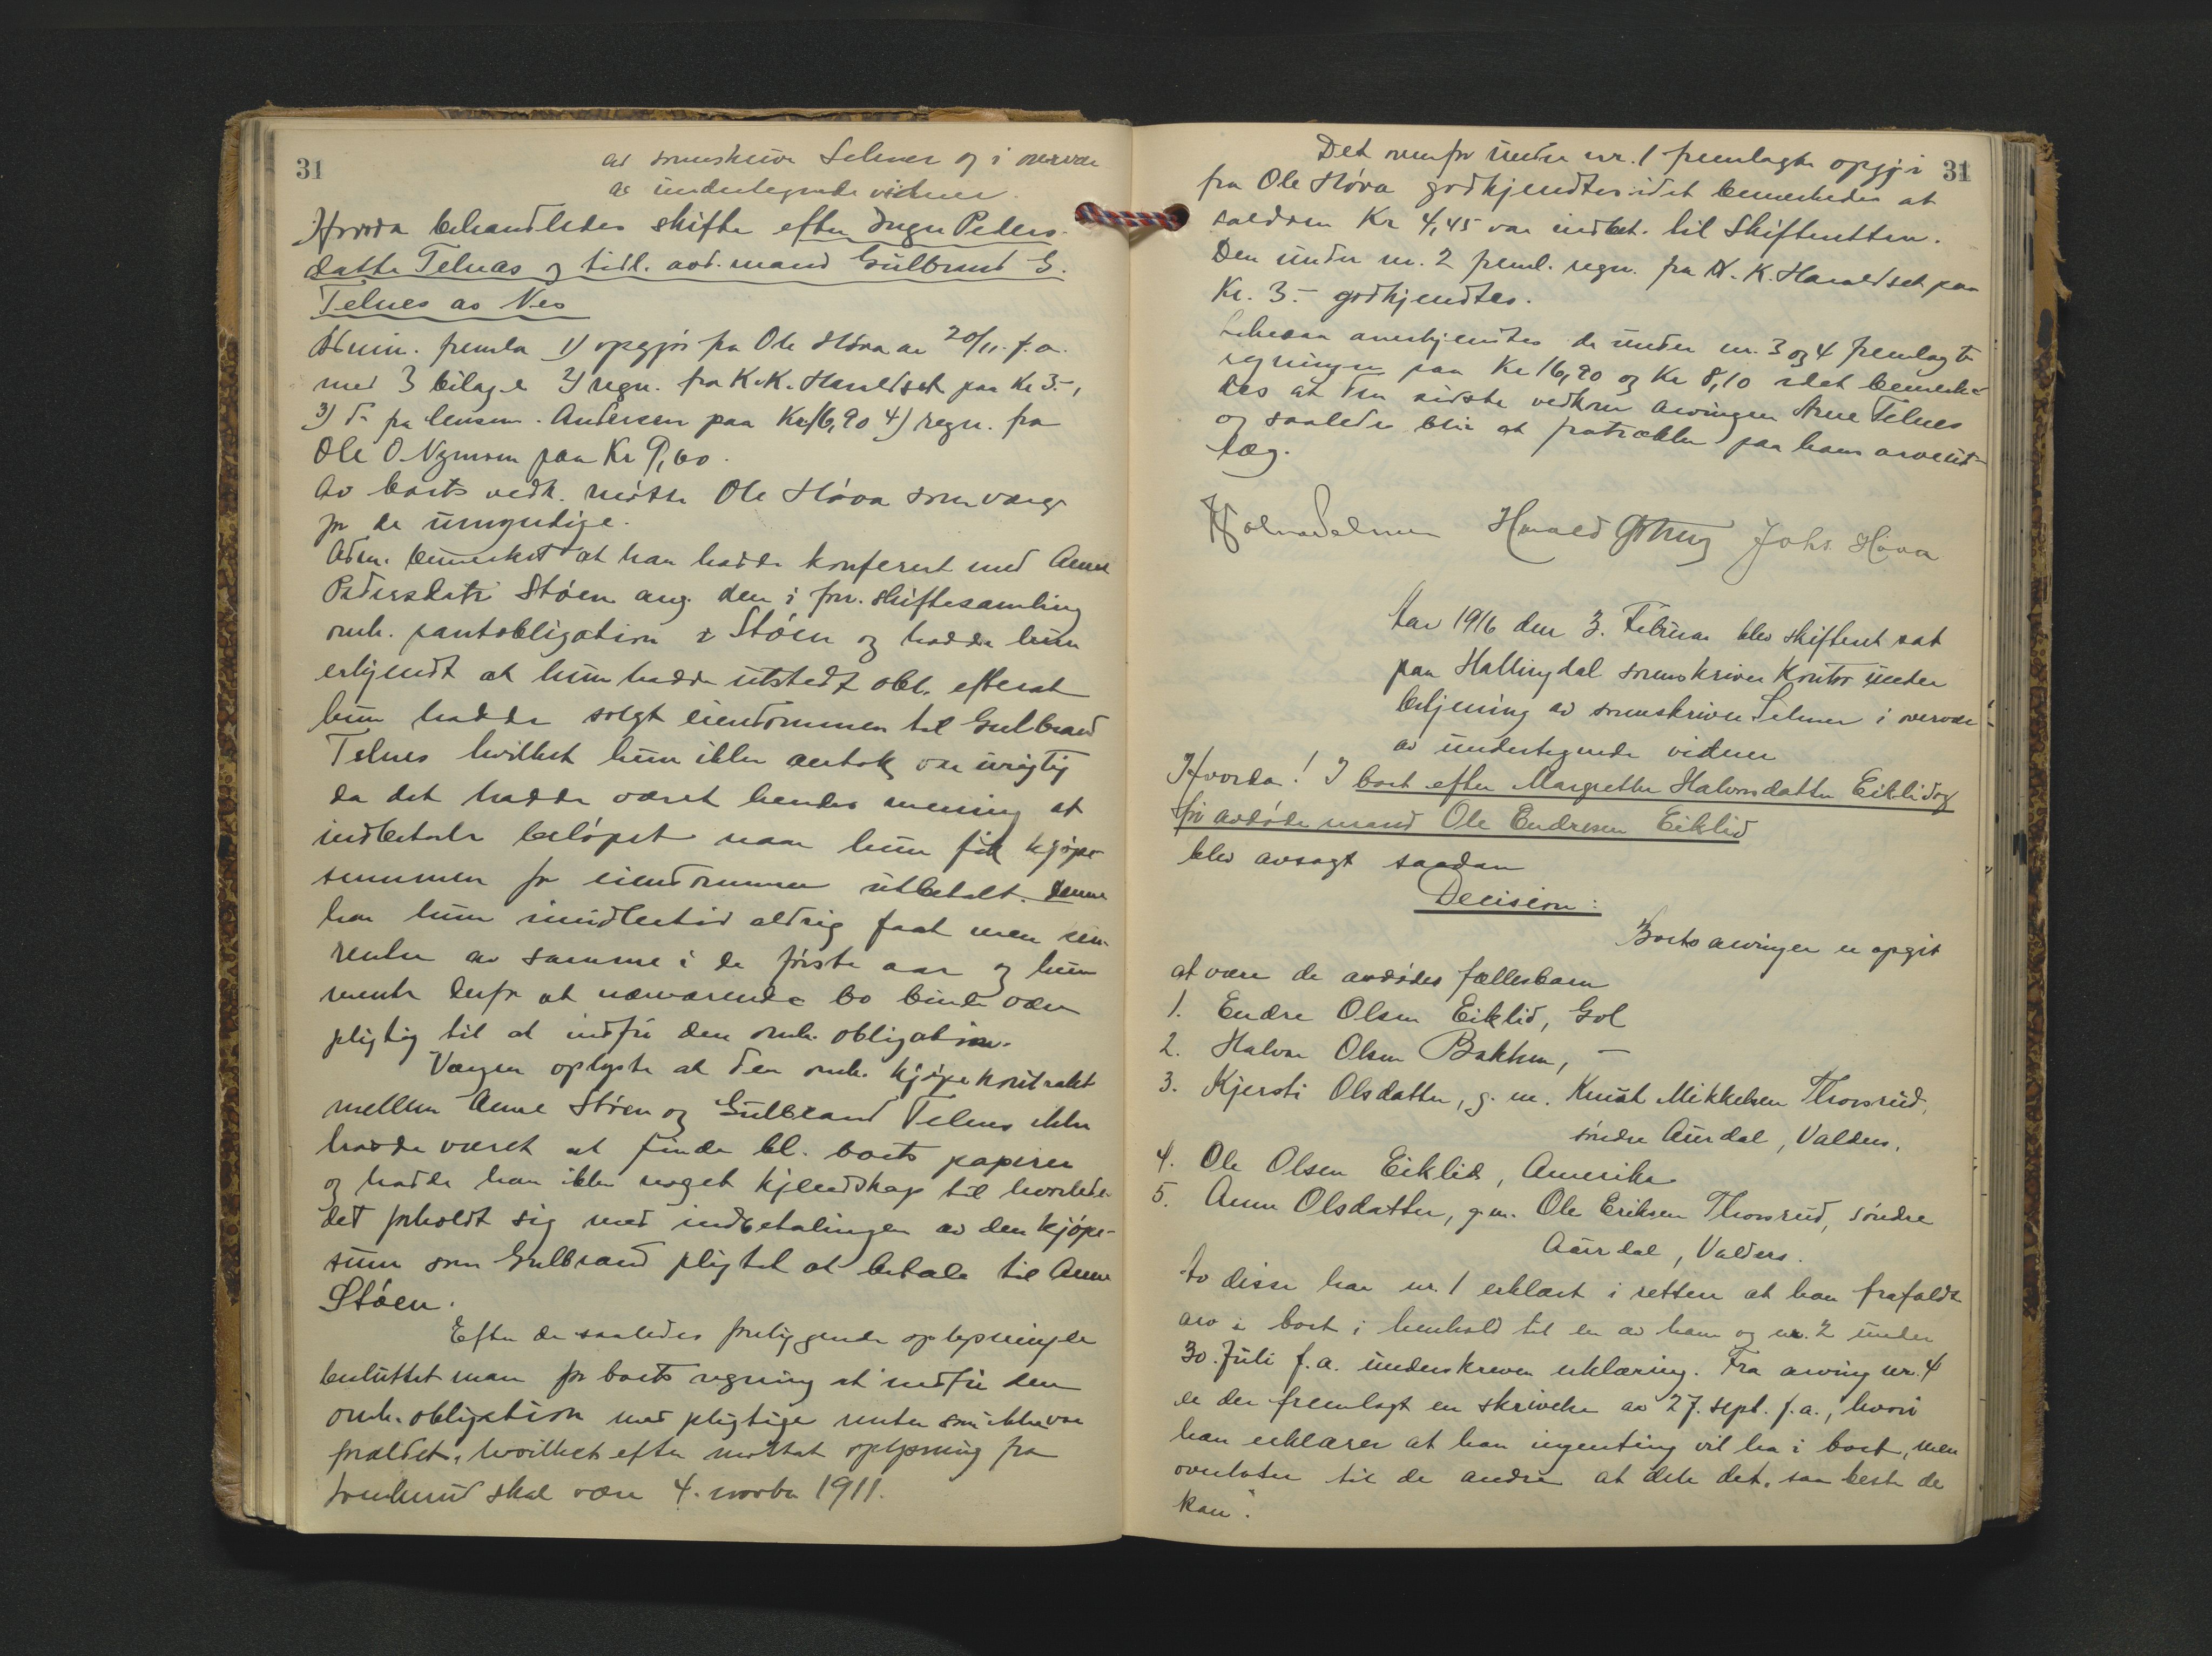 31
av sorenskriver Selmer og i overvær
av undertegnede vidner.
Hvorda behandledes skifte efter Inger Peders-
datter Telnæs og tidl. avd. mand Gulbrand G.
Telnes av Nes
Admin. fremla 1) opgjør fra Ole Høva av 20/11. f.a.
med 3 bilage 2) regn. fra K.K. Haraldset paa Kr 3.-,
3) do fra lensm. Andersen paa Kr 16,90 4) regn. fra
Ole O. Nymoen paa Kr 9,60.
Av boets vedk. møtte Ole Høva som værge
for de umyndige.
Adm. bemerket at han hadde konferert med Anne
Pedersdatter Støen ang. den i forr. skiftesamling
omh. pantobligation i Støen og hadde hun
erkjendt at hun hadde utstedt obl. efterat
hun hadde solgt eiendommen til Gulbrand
Telnes hvilket hun ikke antok var urigtig
da det hadde været hendes mening at
indbetale beløpet naar hun fik kjøpe-
summen for eiendommen utbetalt. Denne
har hun imidlertid aldrig faat men kun
renter av samme i de første aar og hun
mente derfor at nærværende bo burde være
pligtig til at indfri den omh. obligation.
Værgen oplyste at den omh. kjøpekontrakt
mellem Anne Støen og Gulbrand Telnes ikke
hadde været at finde bl. boets papirer
og hadde han ikke noget kjendskap til hvorledes
det forholdt sig med indbetalingen av den kjøpe-
sum som Gulbrand pligtet at betale til Anne
Støen.
Efter de saaledes foreliggende oplysninger
besluttet man for boets regning at indfri den
omh. obligation med pligtige renter som ikke var
forældet, hvilket efter mottat oplysning fra
skal være 4. novbr 1911.
31
Det ovenfor under nr. 1 fremlagte opgjør
fra Ole Høva godkjendtes idet bemerkedes at
saldoen Kr 4,45 var indbet. til Skifteretten.
Den under nr. 2 freml. regn. fra K. K. Haraldset paa
Kr. 3.- godkjendtes.
Likesaa anerkjendtes de under nr. 3 og 4 fremlagte
regninger paa Kr 16,90 og Kr 8,10 idet bemerke-
des at den sidste vedkom arvingen Arne Telnes
og saaledes blir at fratrække paa hans arveut-
læg.
Selmer Harald Johs. Høva
Aar 1916 den 3. Februar blev skifteret sat
paa Hallingdal sorenskriver Kontor under
betjening av sorenskriver Selmer i overvær
av undertegnede vidner
Hvorda! I boet efter Margrethe Halvorsdatter Eiklid og
før avdøde mand Ole Endresen Eiklid
blev avsagt saadan
Decision:
Boets arvinger er opgit
at være de avdødes fællesbarn
1. Endre Olsen Eiklid, Gol
2. Halvor Olsen Bakken, -
3. Kjersti Olsdatter, g. m. Knut Mikkelsen Thorsrud,
søndre Aurdal, Valders.
4. Ole Olsen Eiklid, Amerika
5. Anne Olsdatter, g.m. Ole Eriksen Thorsrud, søndre
Aurdal, Valders.
Av disse har nr. 1 erklært i retten at han frafaldt
arv i boet i henhold til en av ham og nr. 2 under
30. Juli f.a. underskreven erklæring. Fra arving nr. 4
er der fremlagt en skrivelse av 27. sept. f.a., hvori
han erklærer at han ingenting vil ha i boet, men
overlater til de andre at dele det, "saa beste de
kan".